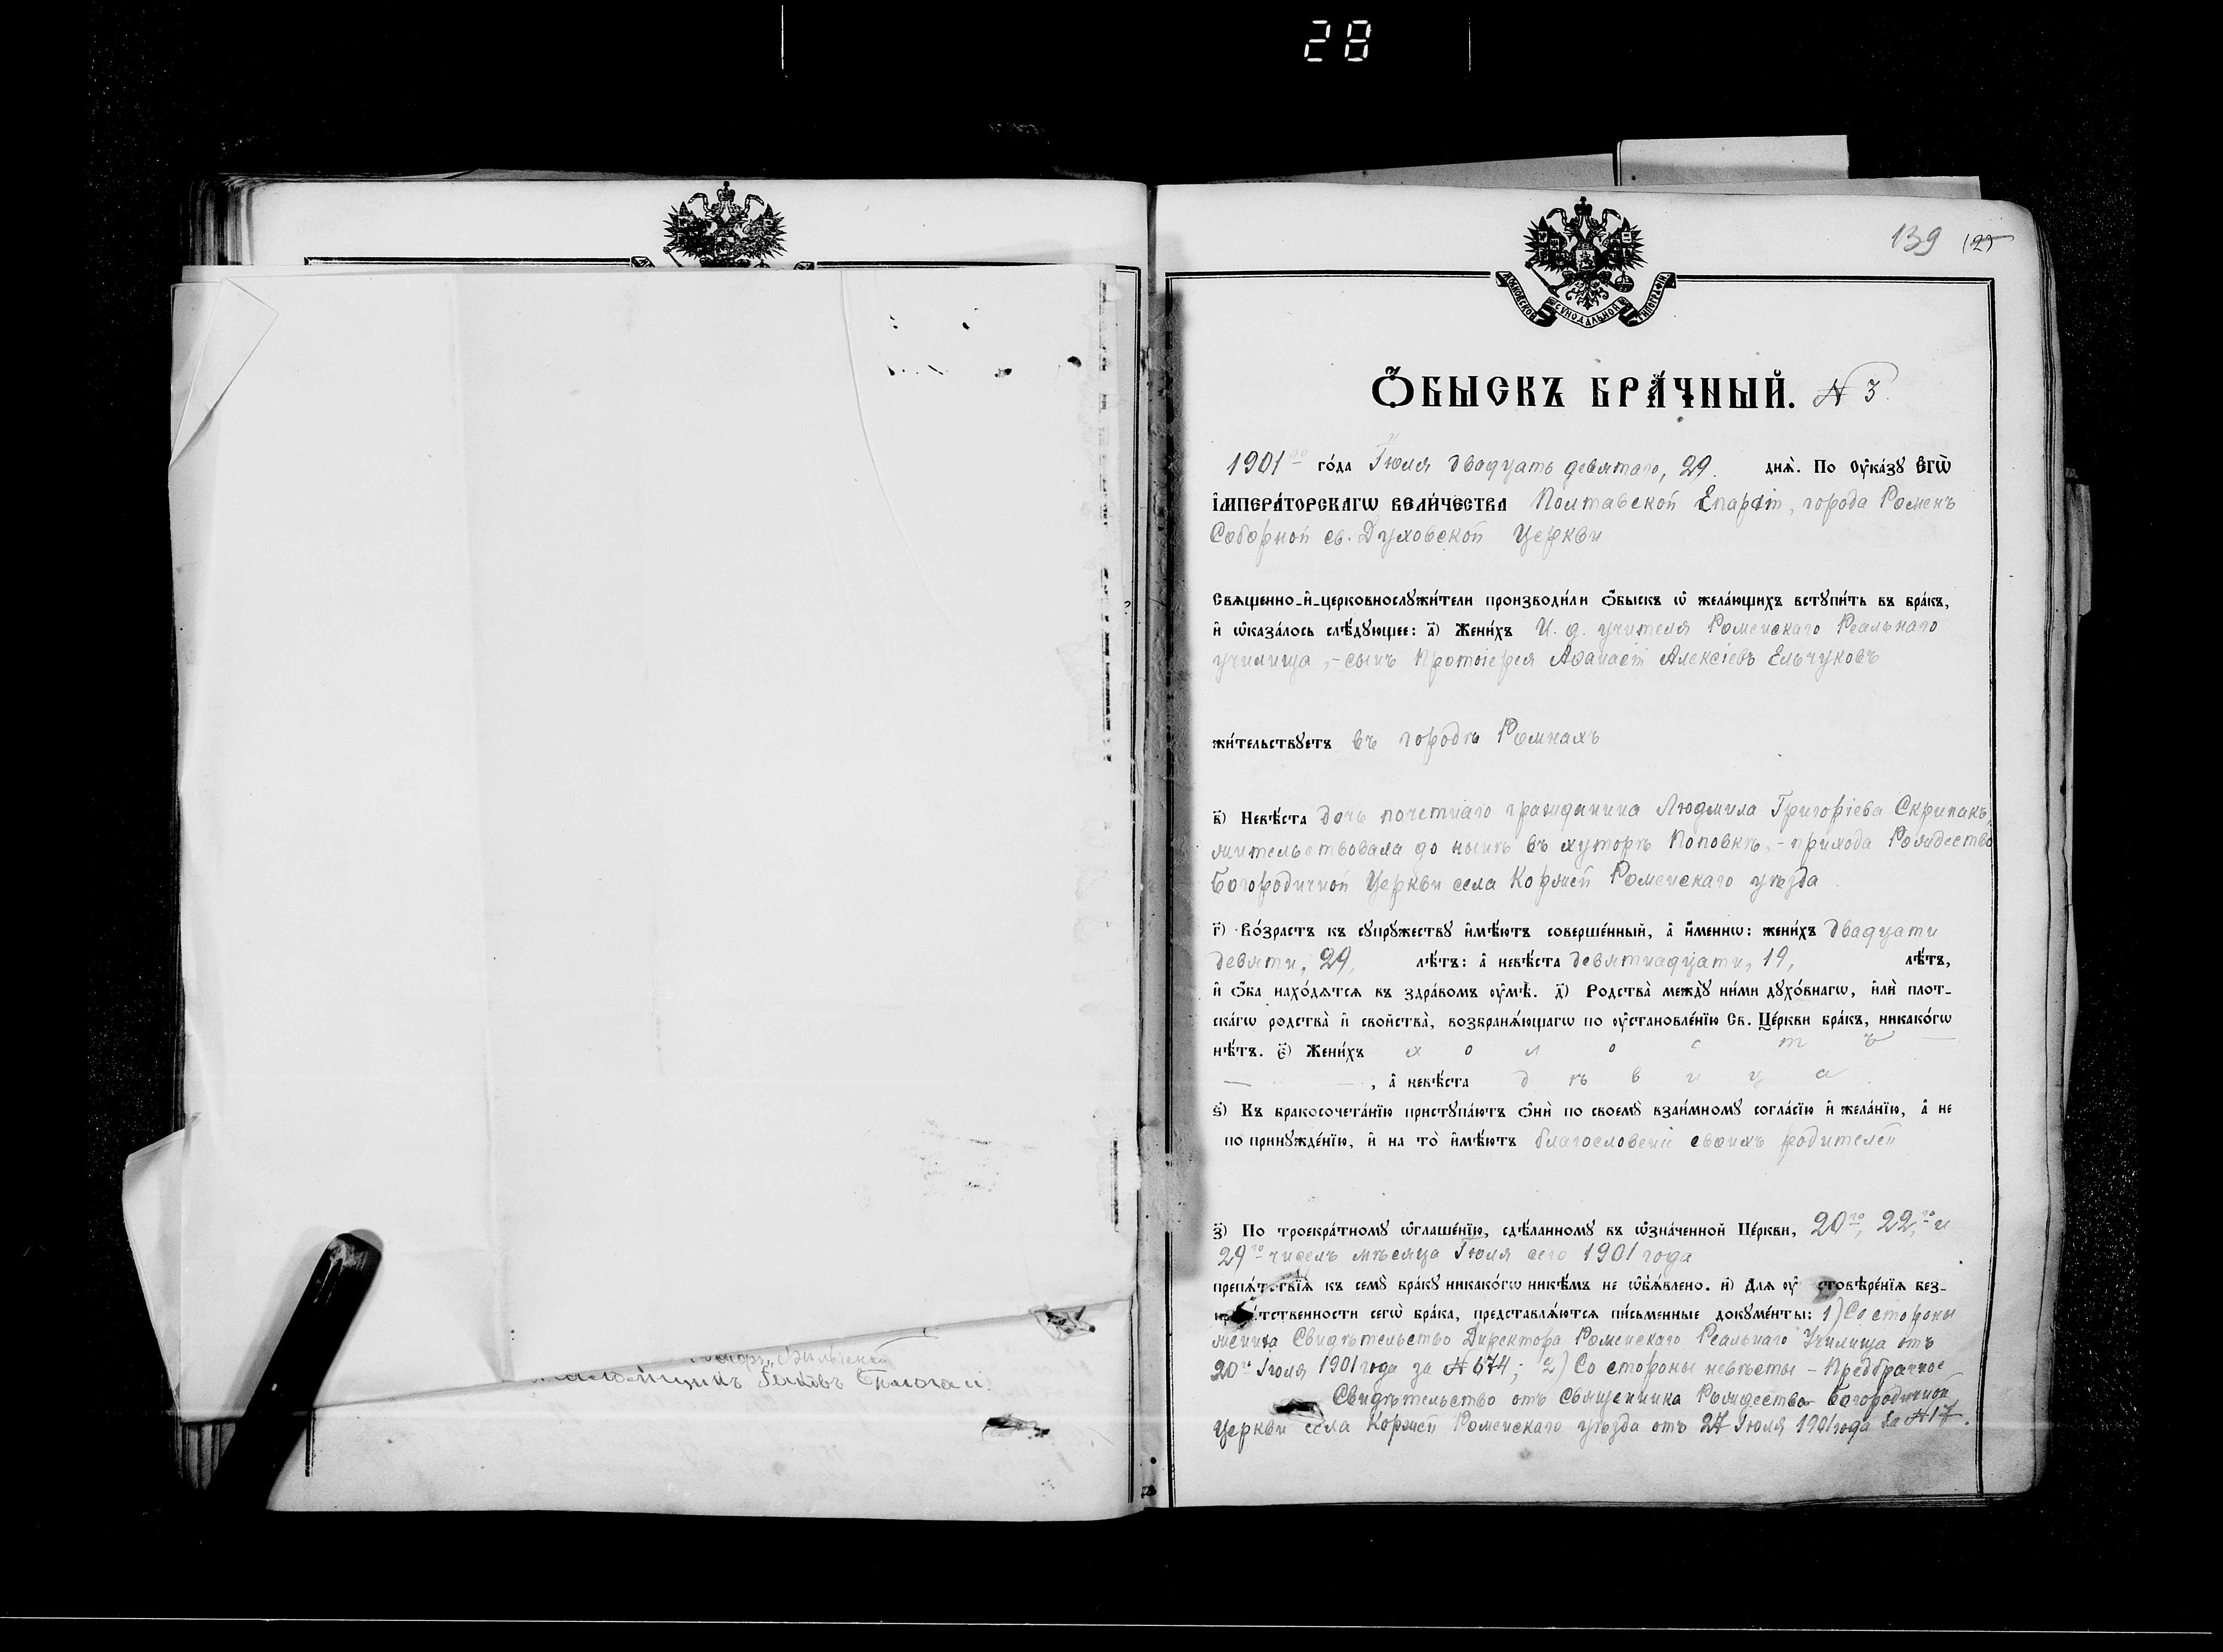 28
139
МОСКОВСКОЙ СѴНОДАЛЬНОЙ ТИПОГРАФІИ
Ѻ҆БЫСКЪ БРА́ЧНЫЙ. № 3.
1901го го́да Іюля двадцать девятаго, 29. днѧ̀. По ᲂу҆ка́зꙋ Є҆гѡ̀
І҆мпера́торскагѡ Вели́чества Полтавской Епархіи, города Роменъ
Соборной св. Духовской Церкви
Свѧщенно-и҆-церковнослꙋжи́тели производи́ли ѻ҆́быскъ ѡ҆ жела́ющихъ встꙋпи́ть въ бра́къ,
и҆ ѡ҆каза́лось слѣ́дꙋющее: а҃) Жени́хъ И. д. учителя Роменскаго Реальнаго
училища, - сынъ Протоіерея Аѳанасій Алексіевъ Ельчуковъ
жи́тельствꙋетъ въ городѣ Ромнахъ
в҃) Невѣ́ста дочь почетнаго гражданина Людмила Григоріева Скрипакъ,
жительствовала до нынѣ въ хуторѣ Поповкѣ, - прихода Рождество
Богородичной Церкви села Коржей Роменскаго уѣзда
г҃) Во́зрастъ къ сꙋпрꙋ́жествꙋ и҆мѣ́ютъ соверше́нный, а҆ и҆́меннѡ: жени́хъ двадцати
девяти, 29, лѣ́тъ: а҆ невѣ́ста девятнадцати, 19, лѣ́тъ,
и҆ ѻ҆́ба нахо́дѧтсѧ въ здра́вомъ ᲂу҆мѣ̀. д҃) Родства̀ междꙋ̀ ни́ми дꙋхо́внагѡ, и҆лѝ плот-
ска́гѡ родства̀ и҆ свойства̀, возбранѧ́ющагѡ по ᲂу҆становле́нїю Св. Це́ркви бра́къ, никако́гѡ
нѣ́тъ. є҃) Жени́хъ холостъ —
— —, а҆ невѣ́ста дѣвица.
ѕ҃) Къ бракосочета́нїю пристꙋпа́ютъ ѻ҆нѝ по своемꙋ̀ взаи́мномꙋ согла́сїю и҆ жела́нїю, а҆ не
по принꙋжде́нїю, и҆ на то̀ и҆мѣ́ютъ благословеніе своихъ родителей
з҃) По троекра́тномꙋ ѡ҆глаше́нїю, сдѣ́ланномꙋ въ ѡ҆зна́ченной Це́ркви, 20го, 22го и
29го чиселъ мѣсяца Іюля сего 1901 года
препѧ́тствїѧ къ семꙋ̀ бра́кꙋ никако́гѡ никѣ́мъ не ѡ҆б̾ѧ́влено. и҃) Длѧ ᲂу҆ стовѣре́нїѧ без-
тственности сегѡ̀ бра́ка, представлѧ́ютсѧ пи́сьменные докꙋме́нты: 1) Со стороны
жениха Свидѣтельство Директора Роменскаго Реальнаго Училища отъ
20го Іюля 1901 года за № 674; 2) Со стороны невѣсты – Предбрачное
Свидѣтельство отъ Священника Рождество Богородичной
Церкви села Коржей Роменскаго уѣзда отъ 27 Іюля 1901 года за № 17.